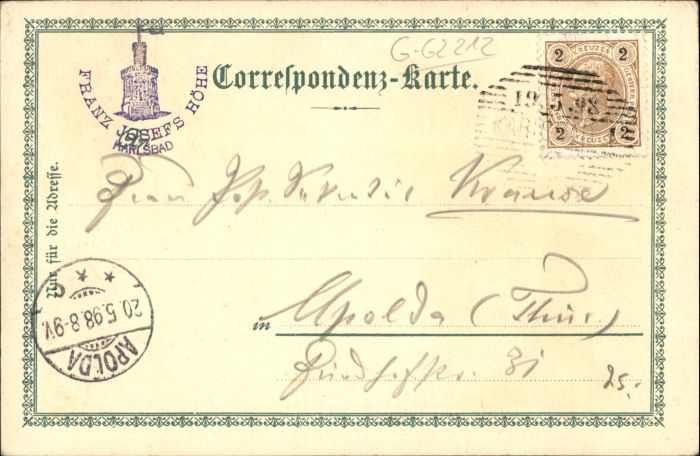 G-G2212
FRANZ JOSEFS HÖHE
KARLSBAD
Correspondenz-Karte.
2 KREUZER 2
2 KREUZER 2
19.5.98
KAR
An
Nur für die Adresse.
Frau Krause
in Apolda (Thür.)
31
25.-
APOLDA
20.5.98.8-9V.